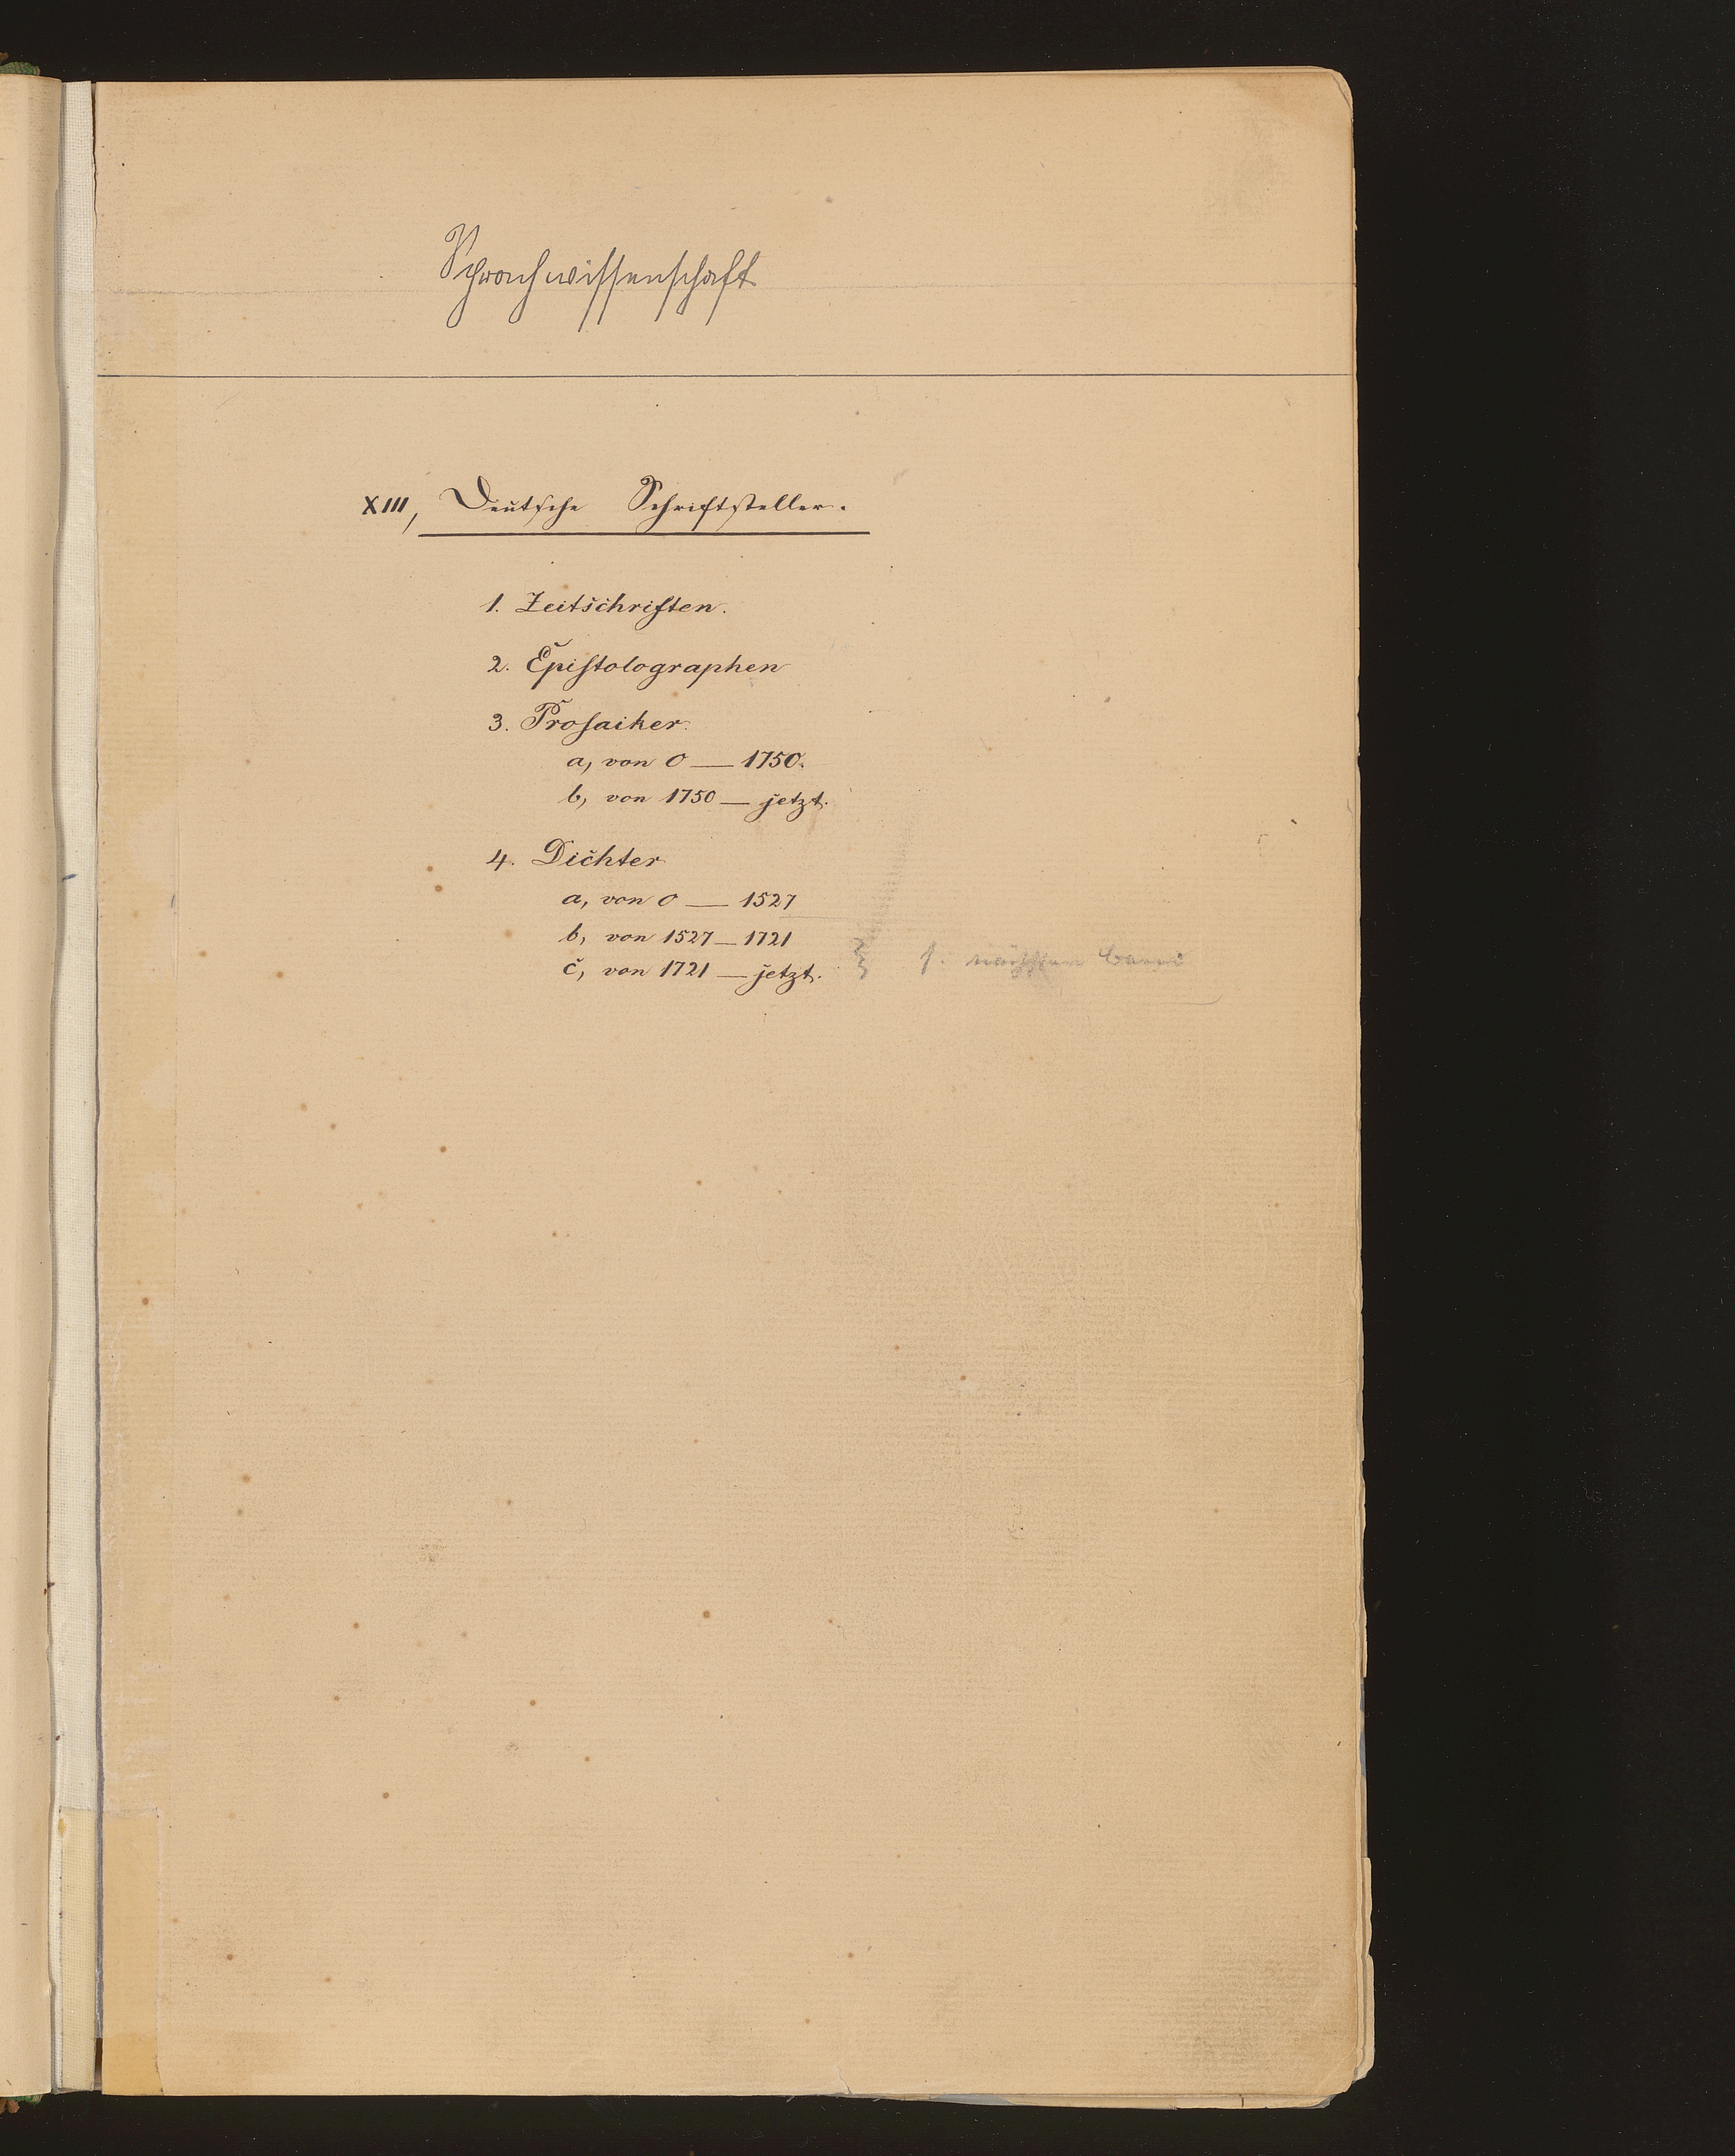 Sprachwissenschaft
XIII, Deutsche Schriftsteller.
1. Zeitschriften.
2. Epistolographen
3. Prosaiker.
a, von 0 — 1750.
b, von 1750 — jetzt.
4. Dichter
a, von 0 — 1527
b, von 1527 — 1721
c, von 1721 — jetzt. s. nächsten Band